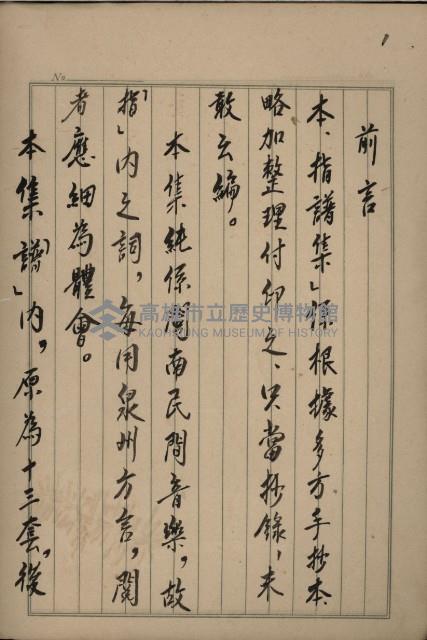 1
No
前言
本「指譜集」係根據多方手抄本、
略加整理付印之、只當抄錄，未
敢云編。
本集純係閩南民間音樂，故
「指」內之詞，每用泉州方言，閱
者應細為體會。
本集「譜」內，原為十三套，後
高雄市立歷史博物館
KAOHSIUNG MUSEUM OF HISTORY